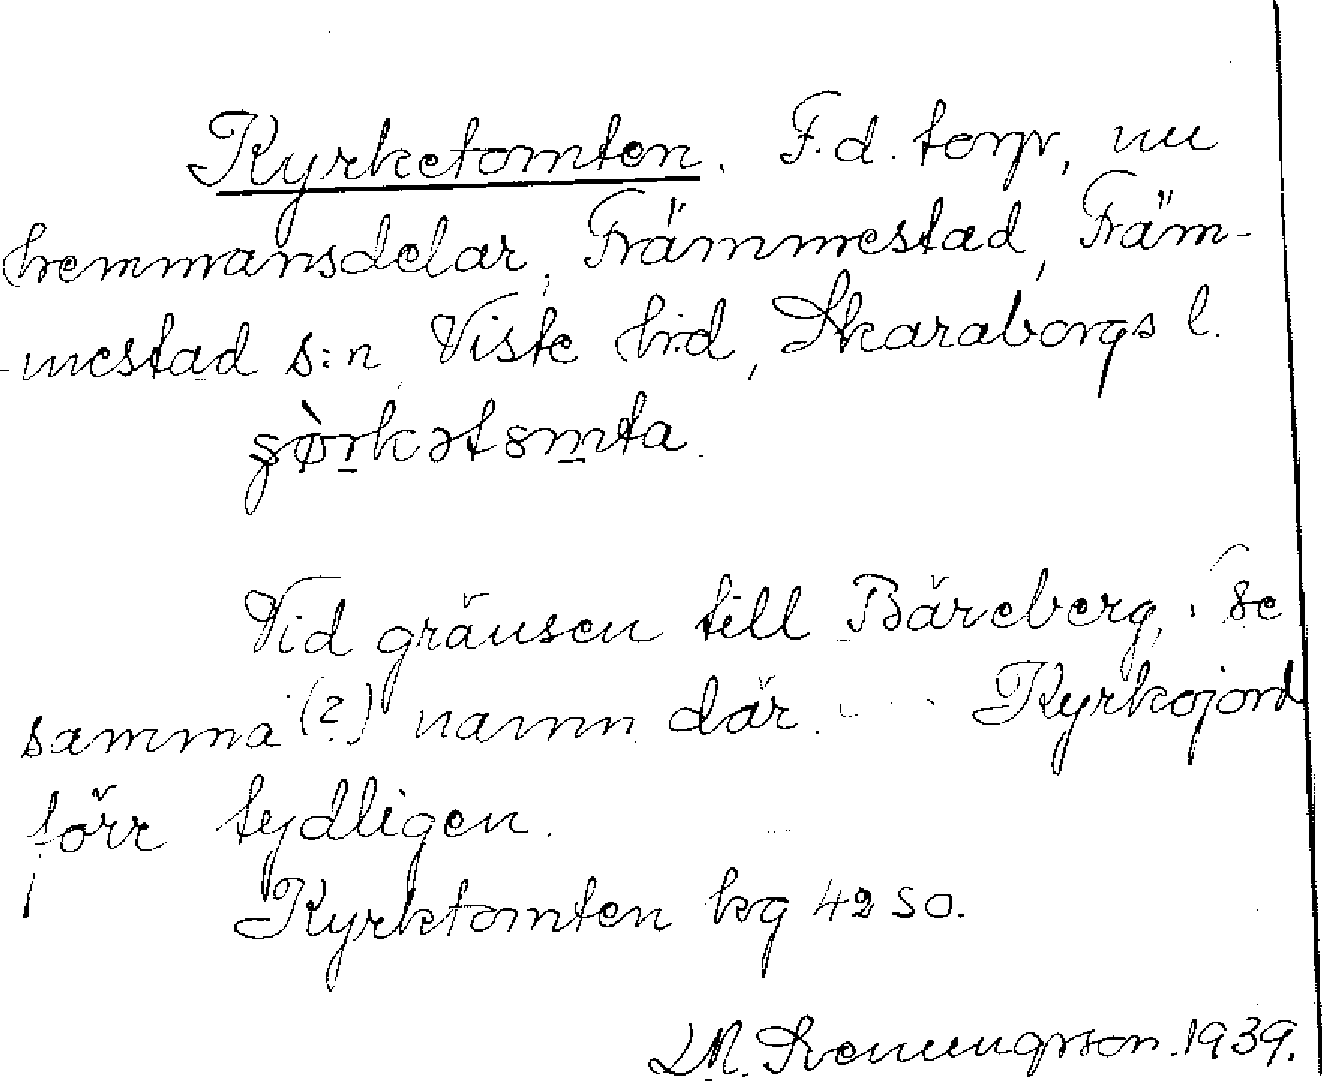 Kyrketomten. F.d. torp, nu
hemmansdelar, Främmestad, Främ-
mestad s:n, Viste hd, Skaraborgs l.
Vid gränsen till Bäreberg, se
samma (?) namn där. Kyrkojord
förr tydligen.
Kyrktomten kg 42 SO.
1939.